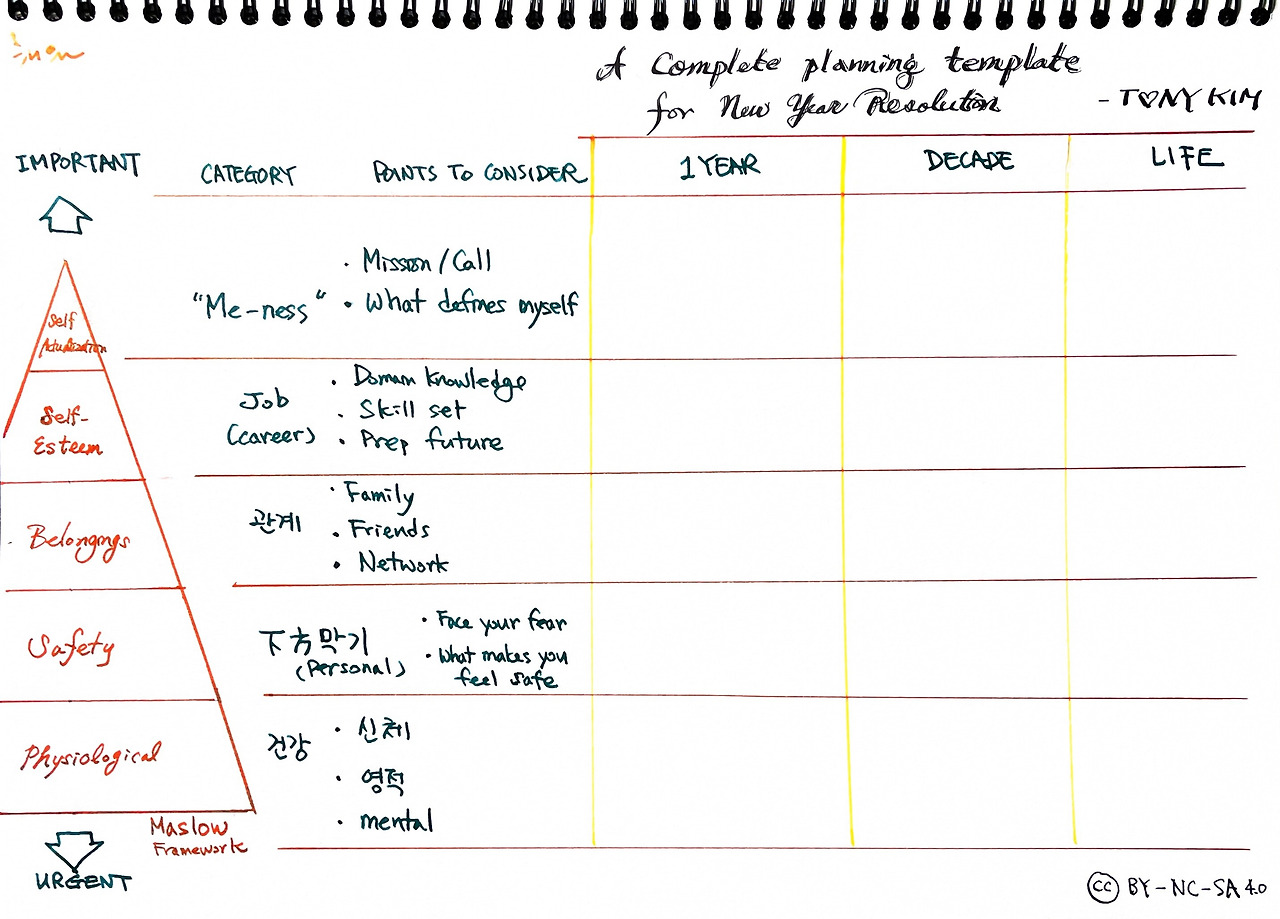 A Complete planning template
for New Year Resolution
- TONY KIM
IMPORTANT
CATEGORY
POINTS TO CONSIDER
1 YEAR
DECADE
LIFE
Self
Actualization
"Me-ness"
· Mission / Call
· What defines myself
Self-
Esteem
Job
(career)
· Domain Knowledge
· Skill set
· Prep future
Belongings
관계
· Family
· Friends
· Network
Safety
下方막기
(Personal)
· Face your fear
· What makes you
feel safe
Physiological
건강
· 신체
· 영적
· mental
Maslow
Framework
URGENT
cc BY-NC-SA 4.0